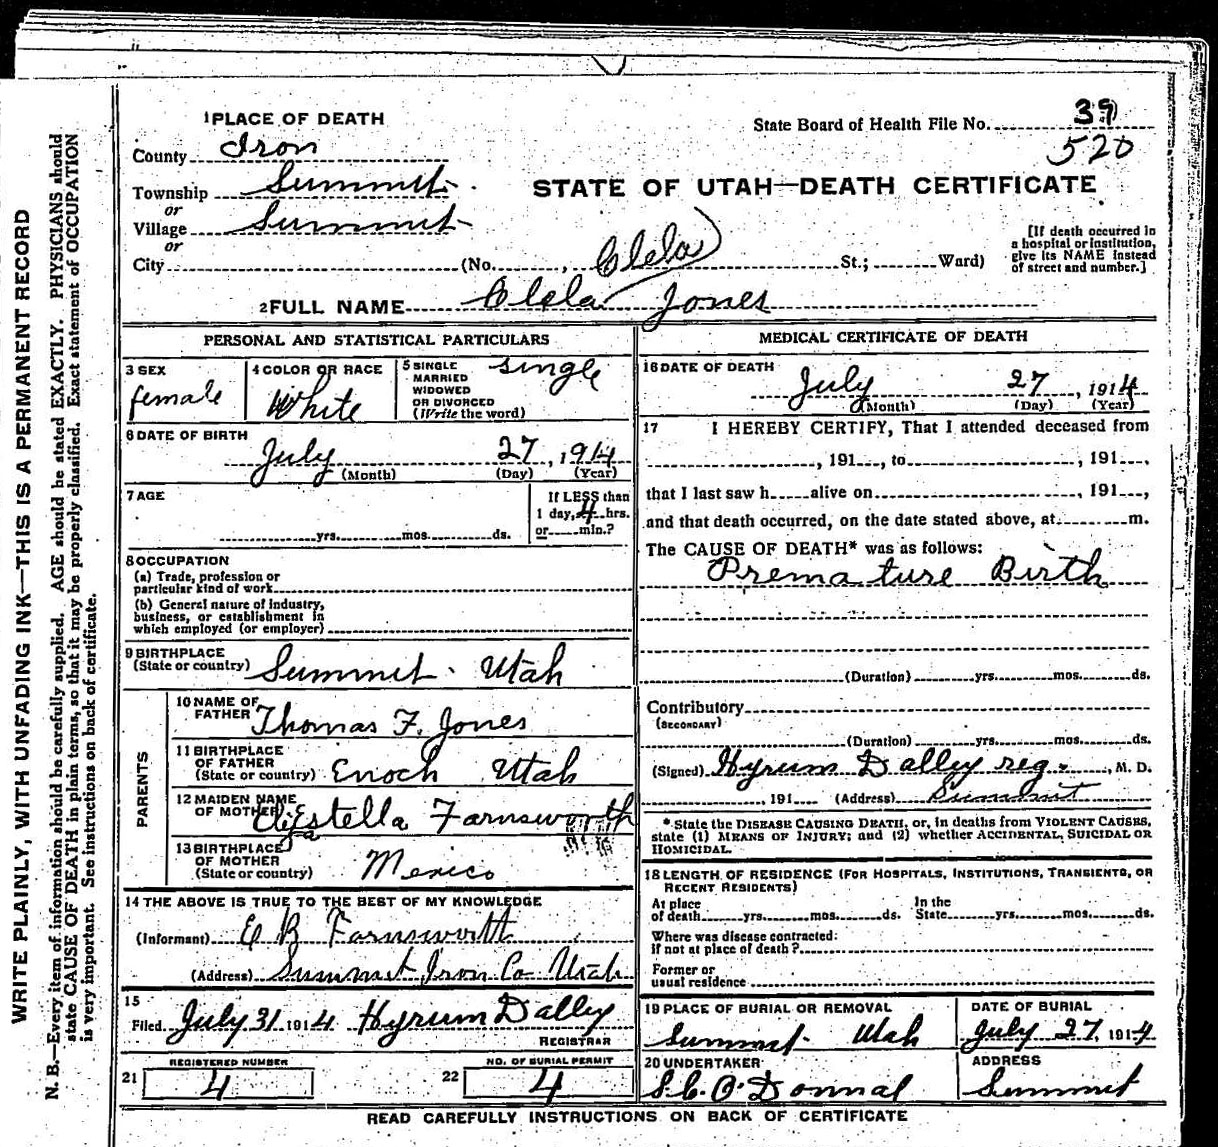 1 PLACE OF DEATH
State Board of Health File No. 39
520
County Iron
Township Summit
or
Village Summit
or
City (No. , Clela St.; Ward)
STATE OF UTAH—DEATH CERTIFICATE
[If death occurred in
a hospital or institution,
give its NAME instead
of street and number.]
2 FULL NAME Clela Jones
PERSONAL AND STATISTICAL PARTICULARS
3 SEX
female
4 COLOR OR RACE
White
5 SINGLE
MARRIED
WIDOWED
OR DIVORCED
(Write the word)
single
6 DATE OF BIRTH
July 27, 1914
(Month) (Day) (Year)
7 AGE
yrs. mos. ds.
If LESS than
1 day, 4 hrs.
or min.?
8 OCCUPATION
(a) Trade, profession or
particular kind of work
(b) General nature of industry,
business, or establishment in
which employed (or employer)
9 BIRTHPLACE
(State or country) Summit Utah
PARENTS
10 NAME OF
FATHER Thomas F. Jones
11 BIRTHPLACE
OF FATHER
(State or country) Enoch Utah
12 MAIDEN NAME
OF MOTHER Estella Farnsworth
13 BIRTHPLACE
OF MOTHER
(State or country) Mexico
14 THE ABOVE IS TRUE TO THE BEST OF MY KNOWLEDGE
(Informant) E B Farnsworth
(Address) Summit Iron Co Utah
15
Filed July 31 1914 Hyrum Dalley
REGISTRAR
REGISTERED NUMBER
21 4
NO. OF BURIAL PERMIT
22 4
MEDICAL CERTIFICATE OF DEATH
16 DATE OF DEATH
July 27, 1914
(Month) (Day) (Year)
17 I HEREBY CERTIFY, That I attended deceased from
, 191 , to , 191 ,
that I last saw h alive on , 191 ,
and that death occurred, on the date stated above, at m.
The CAUSE OF DEATH* was as follows:
Premature Birth
(Duration) yrs. mos. ds.
Contributory
(SECONDARY)
(Duration) yrs. mos. ds.
(Signed) Hyrum Dalley reg. , M. D.
, 191 (Address) Summit
* State the DISEASE CAUSING DEATH, or, in deaths from VIOLENT CAUSES,
state (1) MEANS OF INJURY; and (2) whether ACCIDENTAL, SUICIDAL OR
HOMICIDAL.
18 LENGTH OF RESIDENCE (FOR HOSPITALS, INSTITUTIONS, TRANSIENTS, OR
RECENT RESIDENTS)
At place
of death yrs. mos. ds.
In the
State yrs. mos. ds.
Where was disease contracted:
if not at place of death?
Former or
usual residence
19 PLACE OF BURIAL OR REMOVAL
Summit Utah
DATE OF BURIAL
July 27, 1914
20 UNDERTAKER
S. C. O'Donnal
ADDRESS
Summit
READ CAREFULLY INSTRUCTIONS ON BACK OF CERTIFICATE
WRITE PLAINLY, WITH UNFADING INK—THIS IS A PERMANENT RECORD
N. B.—Every item of information should be carefully supplied. AGE should be stated EXACTLY. PHYSICIANS should
state CAUSE OF DEATH in plain terms, so that it may be properly classified. Exact statement of OCCUPATION
is very important. See instructions on back of certificate.